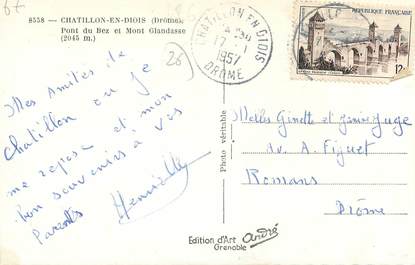 8558 — CHATILLON-EN-DIOIS (Drôme)
Pont du Bez et Mont Glandasse
(2045 m.)
26
CHATILLON EN DIOIS
17 - 1
1957
DROME
REPUBLIQUE FRANÇAISE
12F
Mes amitiés de
Chatillon ou je
me repose et mon
bon souvenir à vos
Parents Henriette
Photo véritable
Melles Ginette et Jeanne Juge
Av. A. Figuet
Romans
Drôme
Edition d'Art André
Grenoble